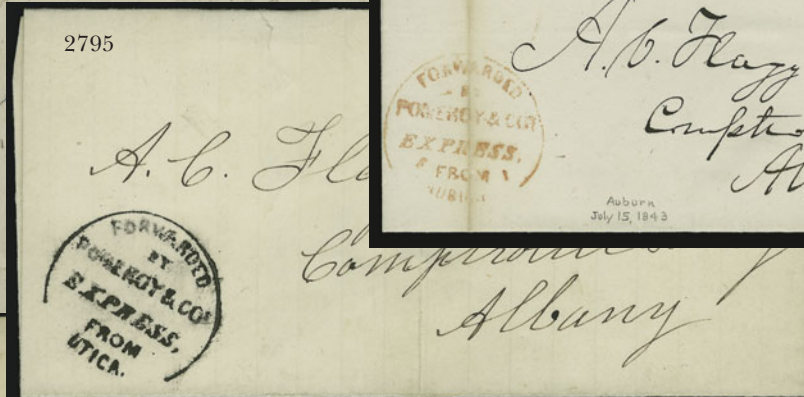 2795
A. C. Fl
Comptroller
Albany
FORWARDED
BY
POMEROY & CO'S
EXPRESS,
FROM
UTICA.
A. C. Flagg
Comptro
Al
FORWARDED
BY
POMEROY & CO'S
EXPRESS,
FROM
AUBURN
Auburn
July 15, 1843